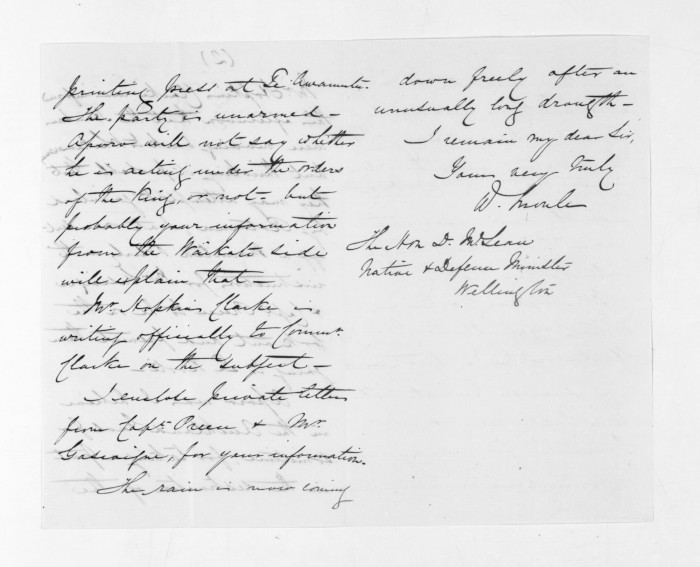 (2)
printing press at Te Awamutu.
The party is unarmed -
Aporo will not say whether
he is acting under the orders
of the King, or not - but
probably your information
from the Waikato side
will explain that -
Mr Hopkins Clarke is
writing officially to Commr.
Clarke on the subject -
I enclose private letters
from Capt. Preece & Mr
Gascoigne, for your information.
The rain is now coming
down freely after an
unusually long drougth -
I remain my dear Sir,
Yours very truly
W. Moule
The Hon D. McLean
Native & Defence Minister
Wellington